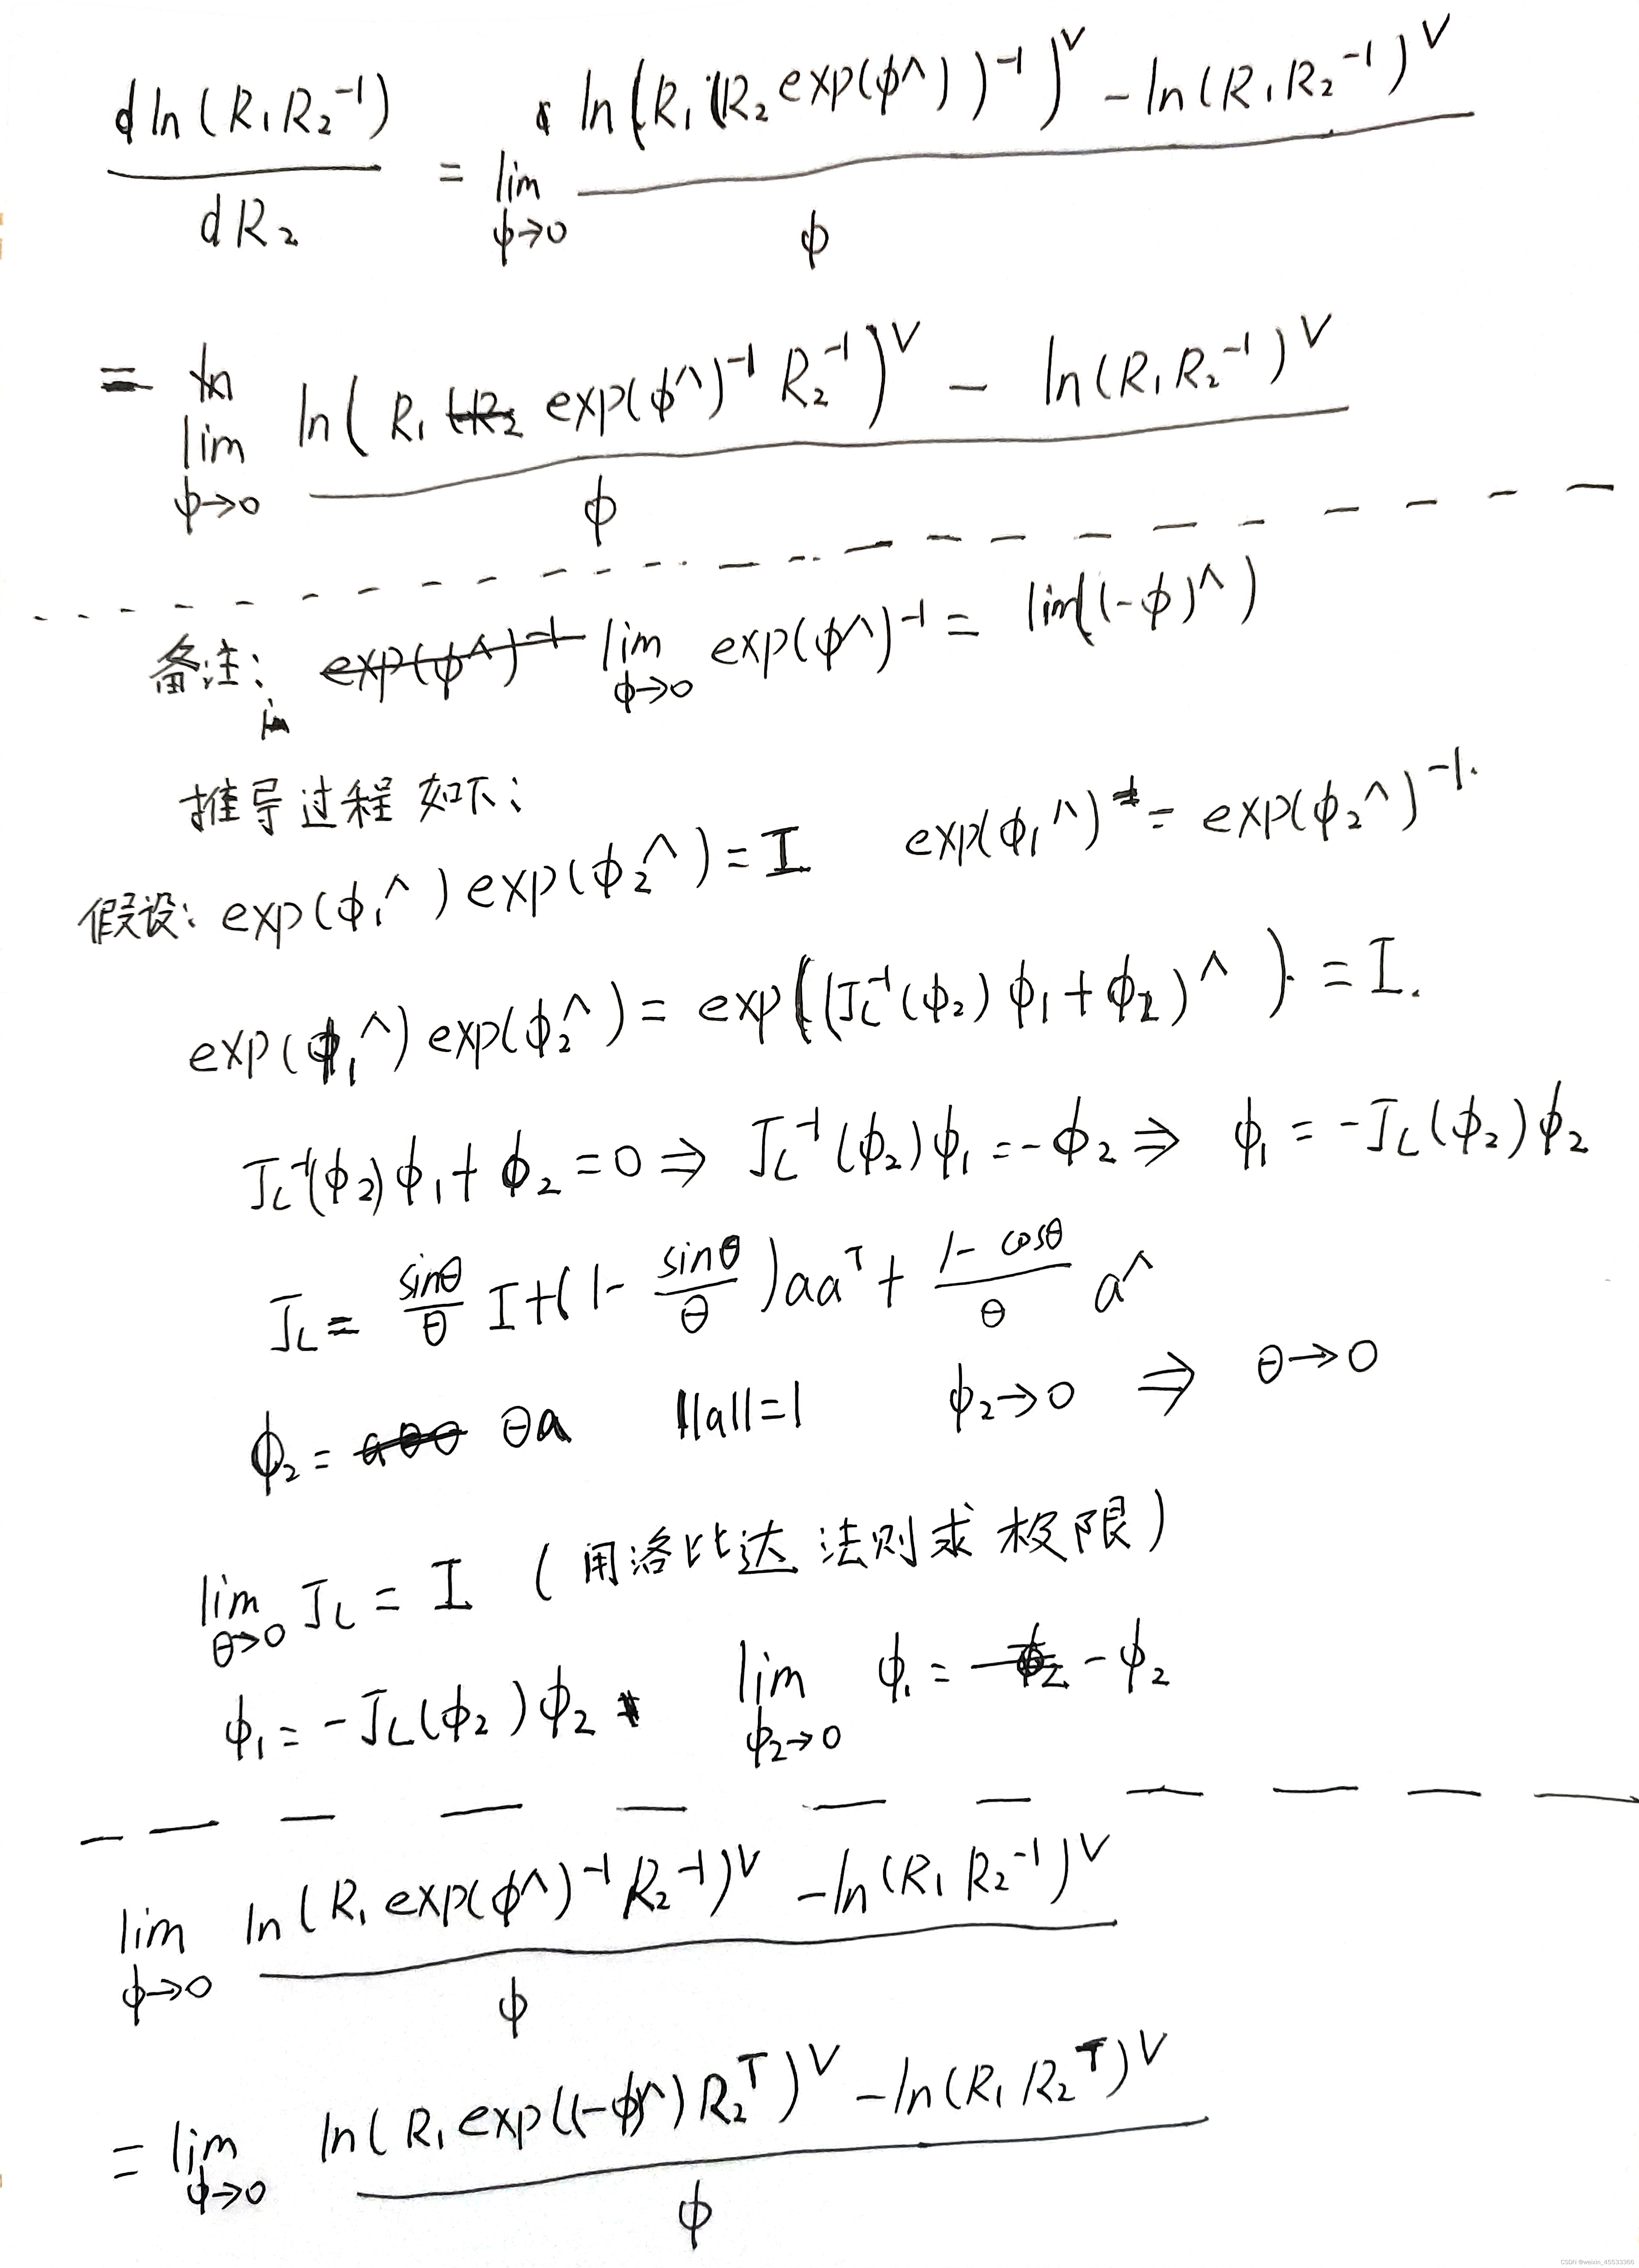 d ln(R₁R₂⁻¹) / dR₂ = lim ϕ→0 [ln(R₁(R₂exp(ϕ^))⁻¹)^∨ - ln(R₁R₂⁻¹)^∨] / ϕ
= lim ϕ→0 [ln(R₁ exp(ϕ^)⁻¹ R₂⁻¹)^∨ - ln(R₁R₂⁻¹)^∨] / ϕ
备注: lim ϕ→0 exp(ϕ^)⁻¹ = lim((-ϕ)^)
推导过程如下:
假设: exp(ϕ₁^)exp(ϕ₂^)=I exp(ϕ₁^) = exp(ϕ₂^)⁻¹.
exp(ϕ₁^)exp(ϕ₂^) = exp((J_L⁻¹(ϕ₂)ϕ₁+ϕ₂)^) = I.
J_L⁻¹(ϕ₂)ϕ₁+ϕ₂=0 ⇒ J_L⁻¹(ϕ₂)ϕ₁=-ϕ₂ ⇒ ϕ₁=-J_L(ϕ₂)ϕ₂
J_L = sinθ/θ I+(1- sinθ/θ)aaᵀ + (1-cosθ)/θ a^
ϕ₂= θa ||a||=1 ϕ₂→0 ⇒ θ→0
lim θ→0 J_L = I (用洛比达法则求极限)
ϕ₁=-J_L(ϕ₂)ϕ₂ lim ϕ₂→0 ϕ₁= -ϕ₂
lim ϕ→0 [ln(R₁exp(ϕ^)⁻¹R₂⁻¹)^∨ - ln(R₁R₂⁻¹)^∨] / ϕ
= lim ϕ→0 [ln(R₁exp((-ϕ)^)R₂ᵀ)^∨ - ln(R₁R₂ᵀ)^∨] / ϕ
CSDN @weixin_45533366